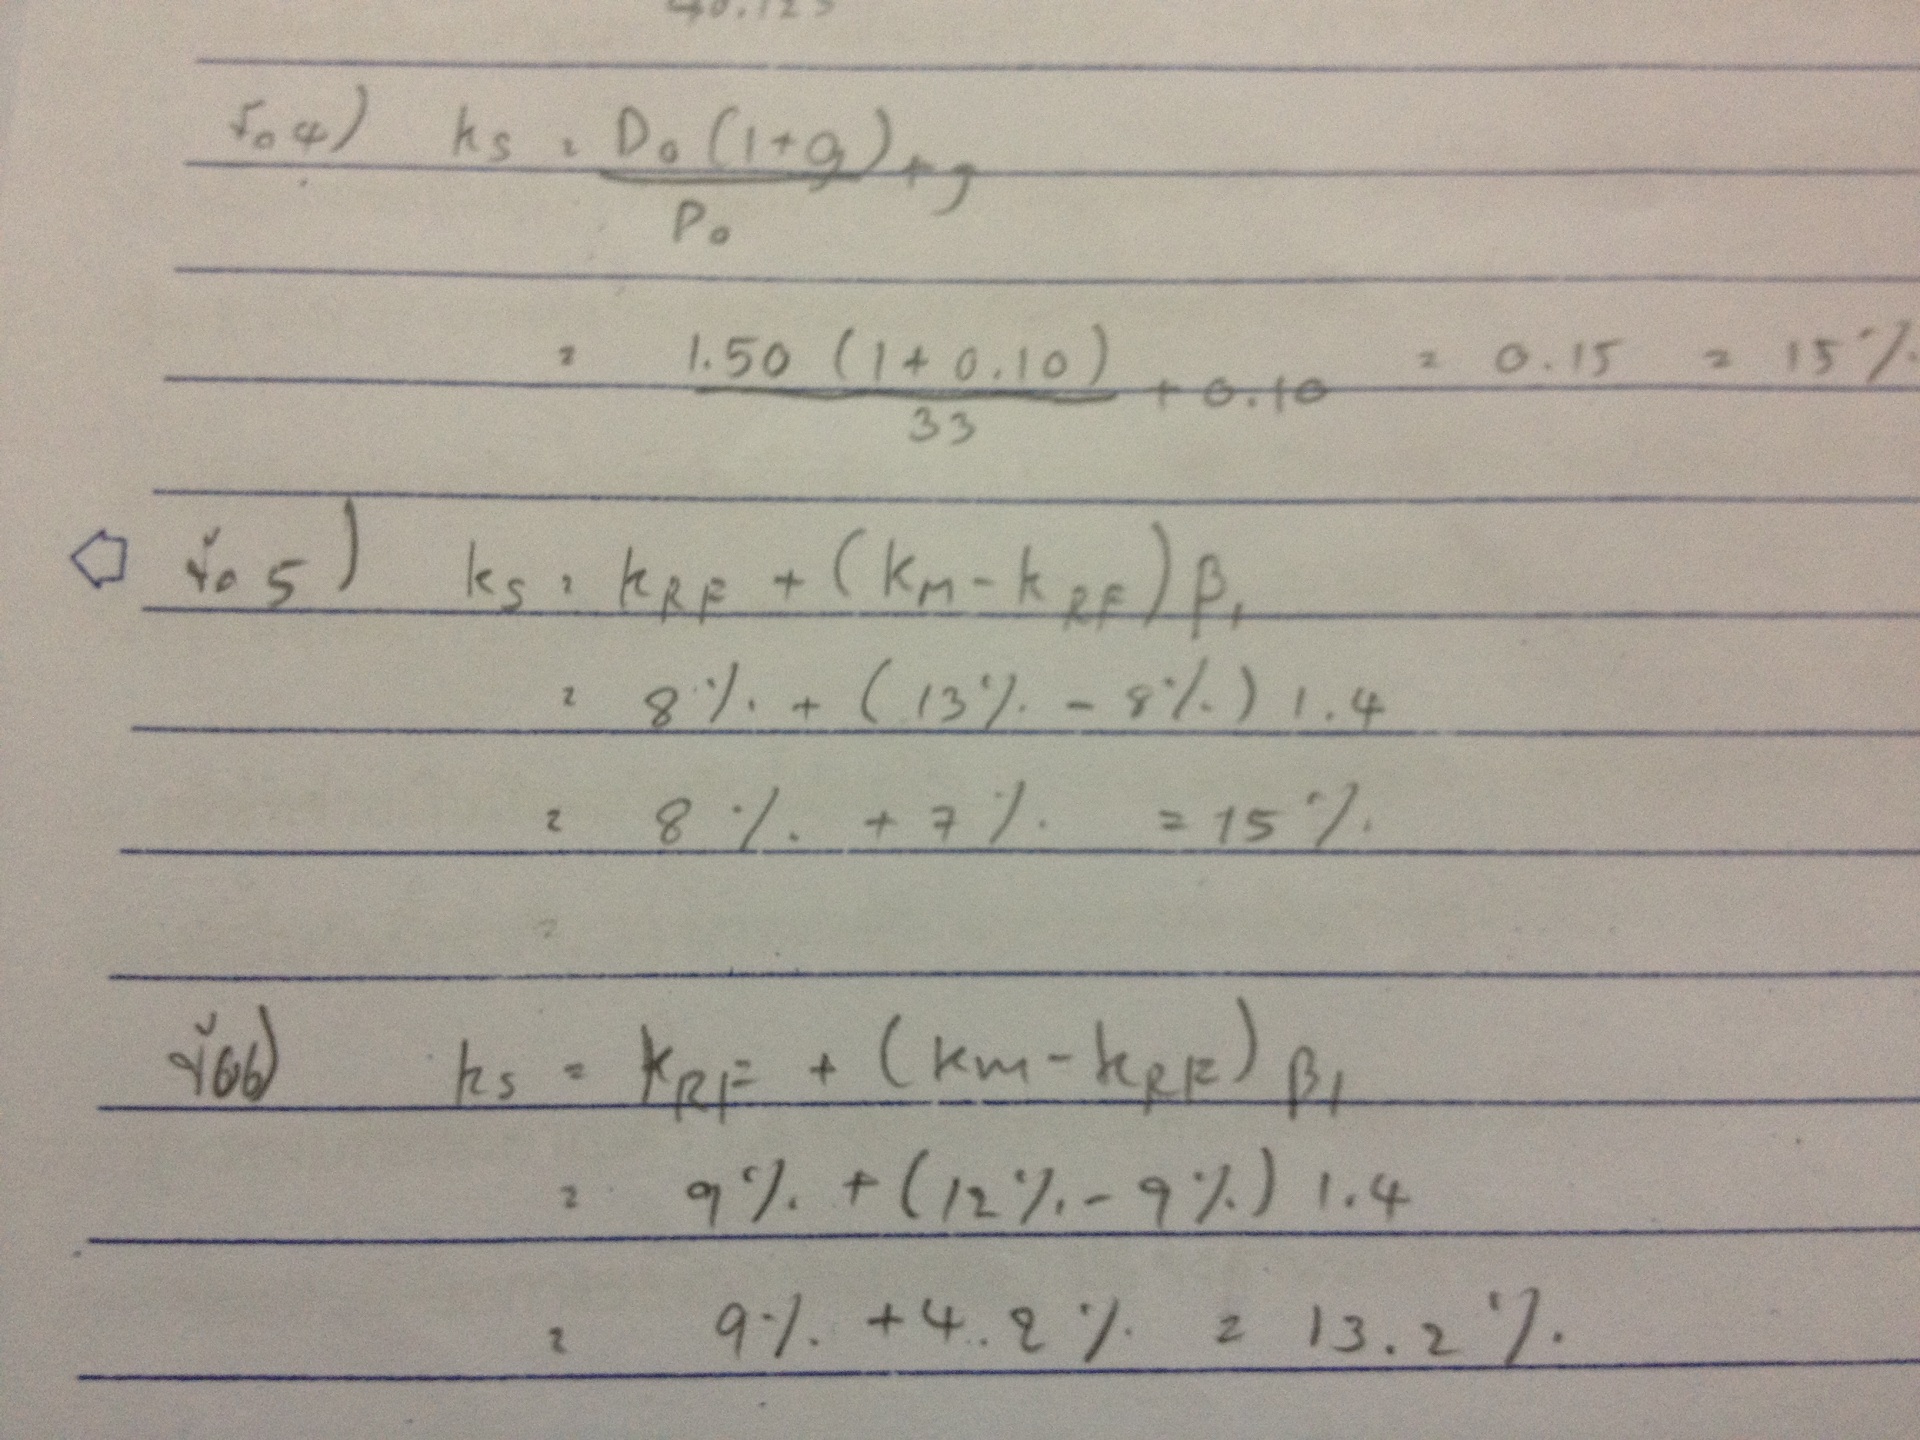 ข้อ 4) ks = D₀(1+g) + g
P₀
= 1.50 (1+0.10) + 0.10 = 0.15 = 15%
33
ข้อ 5) ks = kRF + (kM - kRF) β₁
= 8% + (13% - 8%) 1.4
= 8% + 7% = 15%
ข้อ 6) ks = kRF + (km - kRF) β₁
= 9% + (12% - 9%) 1.4
= 9% + 4.2% = 13.2%